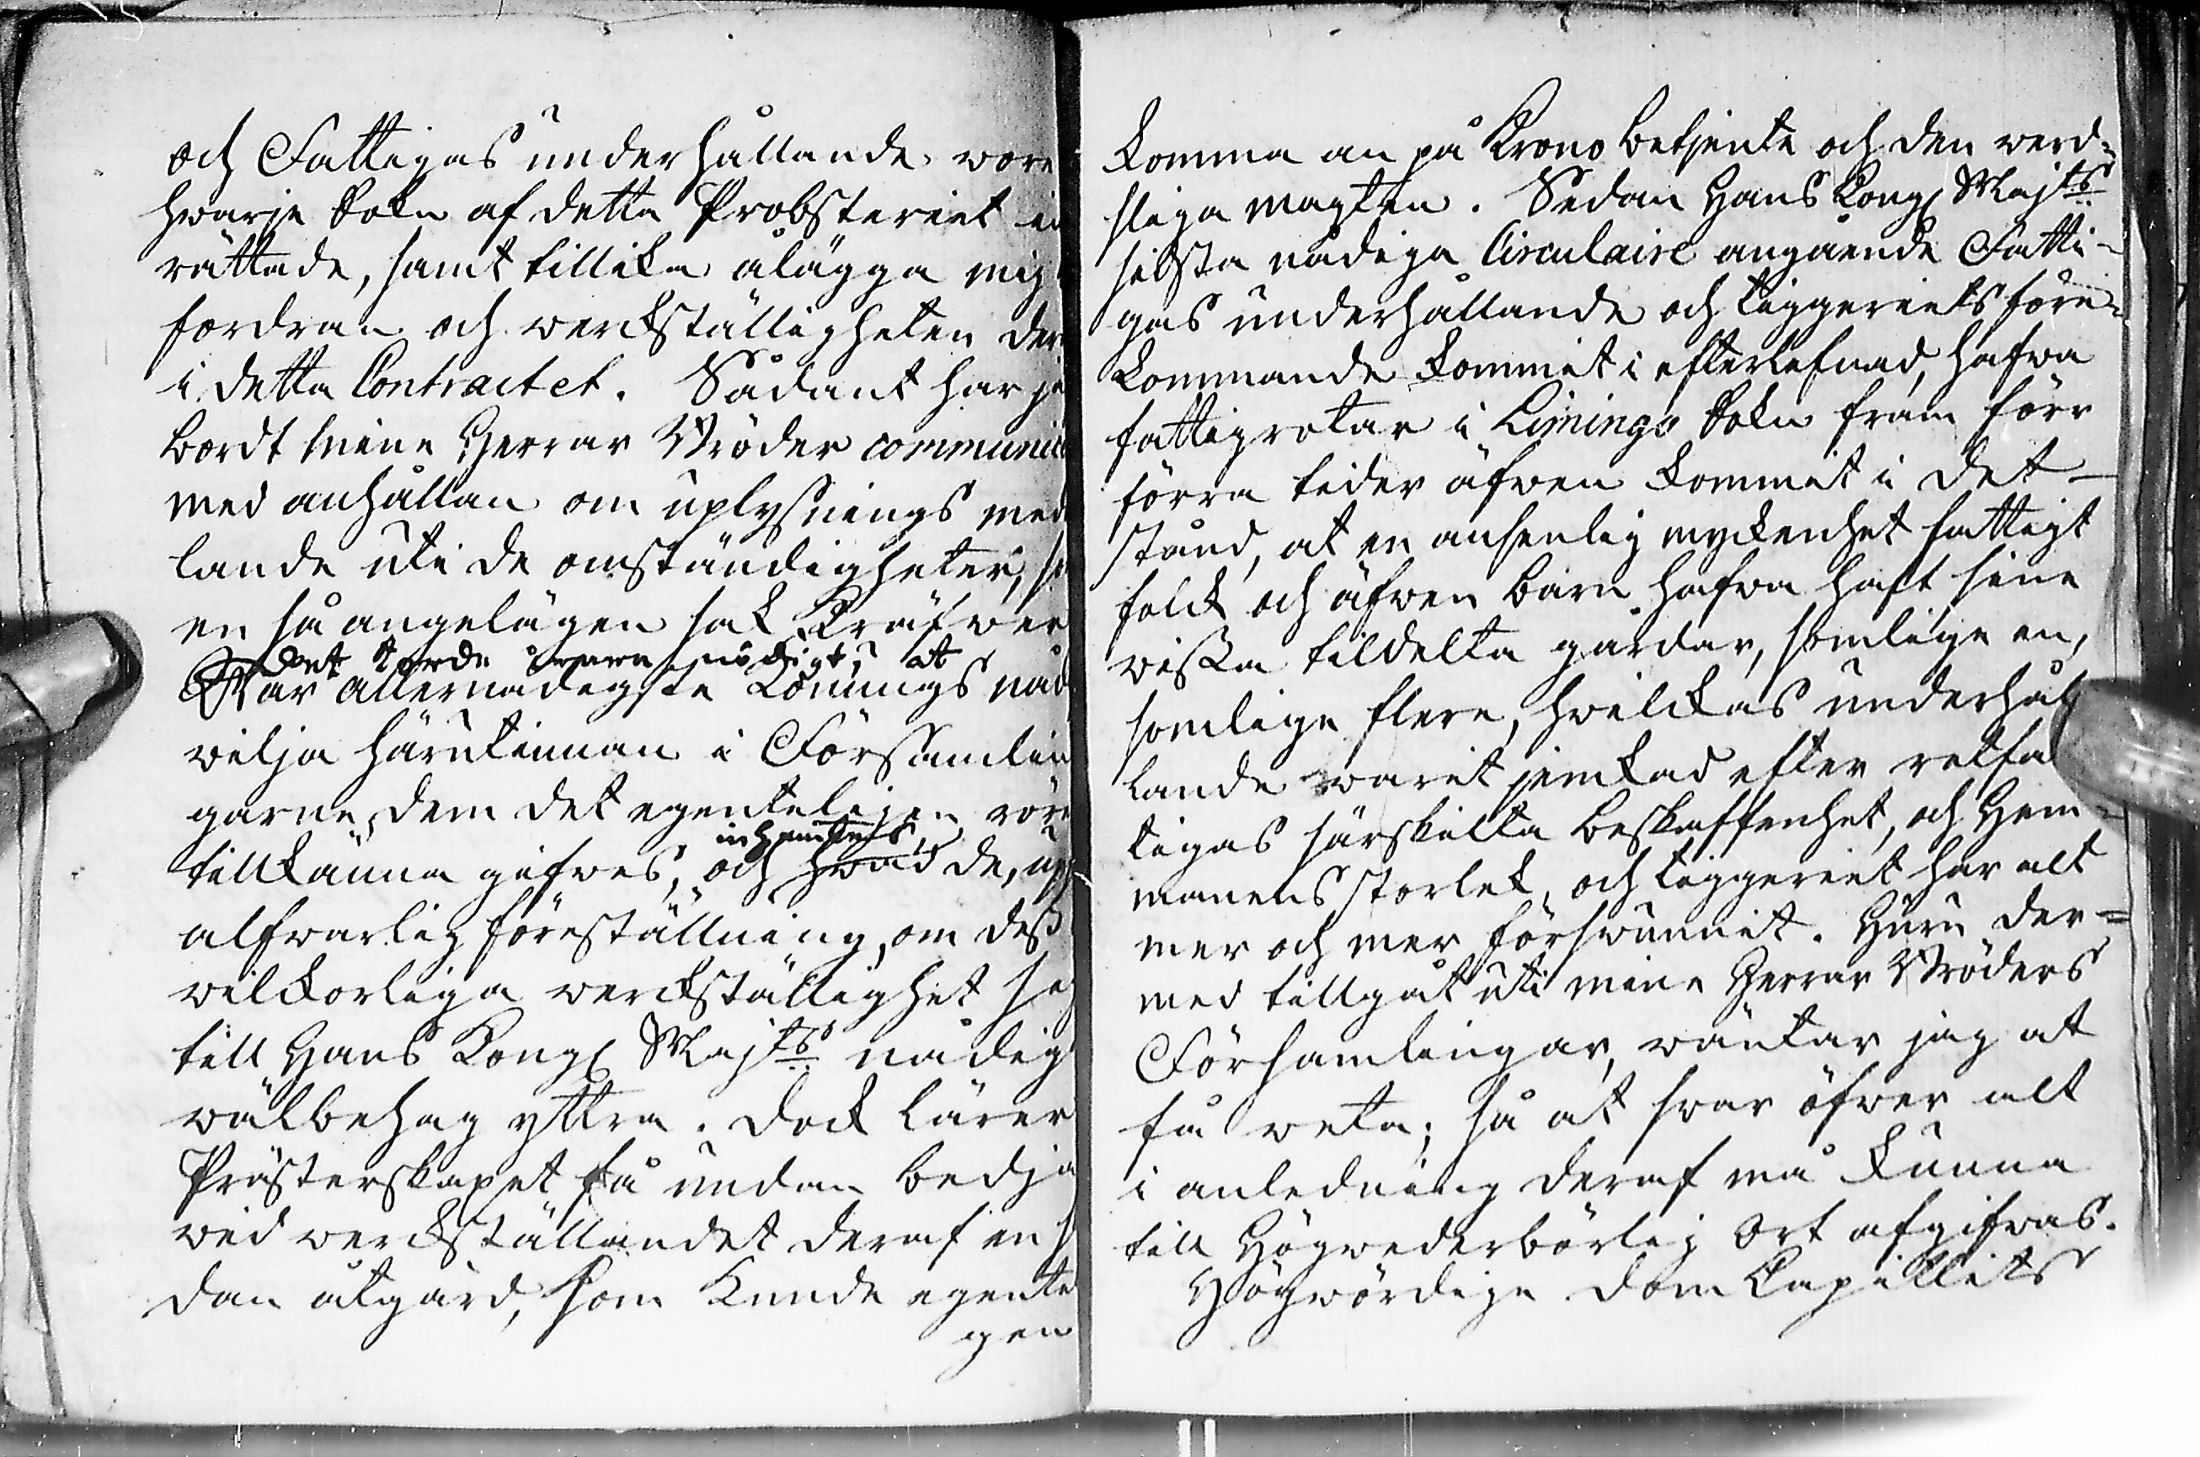 och Fattigas underhållande, wore
hwarje Sokn af detta Probsteriet in
rättade, samt tillika ålägga mig
fordran och werckställigheten der
i detta Contractet. Sådant har je
bordt Mine Herrar Bröder communice
med anhållan om uplysnings med
lande uti de omständigheter, so
en så angelägen sak kräfwer
det torde wara nödigt, at
Wår allernådigste Konungs nåd
wilja härutinnan i Församlin
garne, dem det egenteligen rör
inhemtes,
tillkänna gifwes, och hwad de, up
alfwarlig föreställning, om deß
wilckorliga werckställighet sig
till Hans Kongl Majts nådig
wälbehag yttra. Dock lärer
Prästerskapet få undan bedja
wid werckställandet deraf en så
dan åtgärd, som kunde egente
gen
komma an på Krono betjente och den werd-
sliga magten. Sedan Hans Kongl Majts
sidsta nådiga Circulaire angående Fatti-
gas underhållande och tiggeriets före-
kommande kommit i efterlefnad, hafwa
fattigrotar i Limingo Sokn fram förr
förra tider äfwen kommit i det
stånd, at en ansenlig myckenhet fattigt
folck och äfwen barn hafwa haft sine
wißa tildelta gårdar, somlige en,
somlige flere, hwilckas underhål
lande warit jemkad efter rotfa
tigas särskilta beskaffenhet, och Hem-
manens storlek, och tiggeriet har alt
mer och mer förswunnit. Huru der=
med tillgåt uti mine Herrar Bröders
Församlingar, wäntar jag at
få weta; så at swar öfwer alt
i anledning deraf må kunna
till Högwederbörlig Ort afgifwas.
Högwördige Dom Capitlets